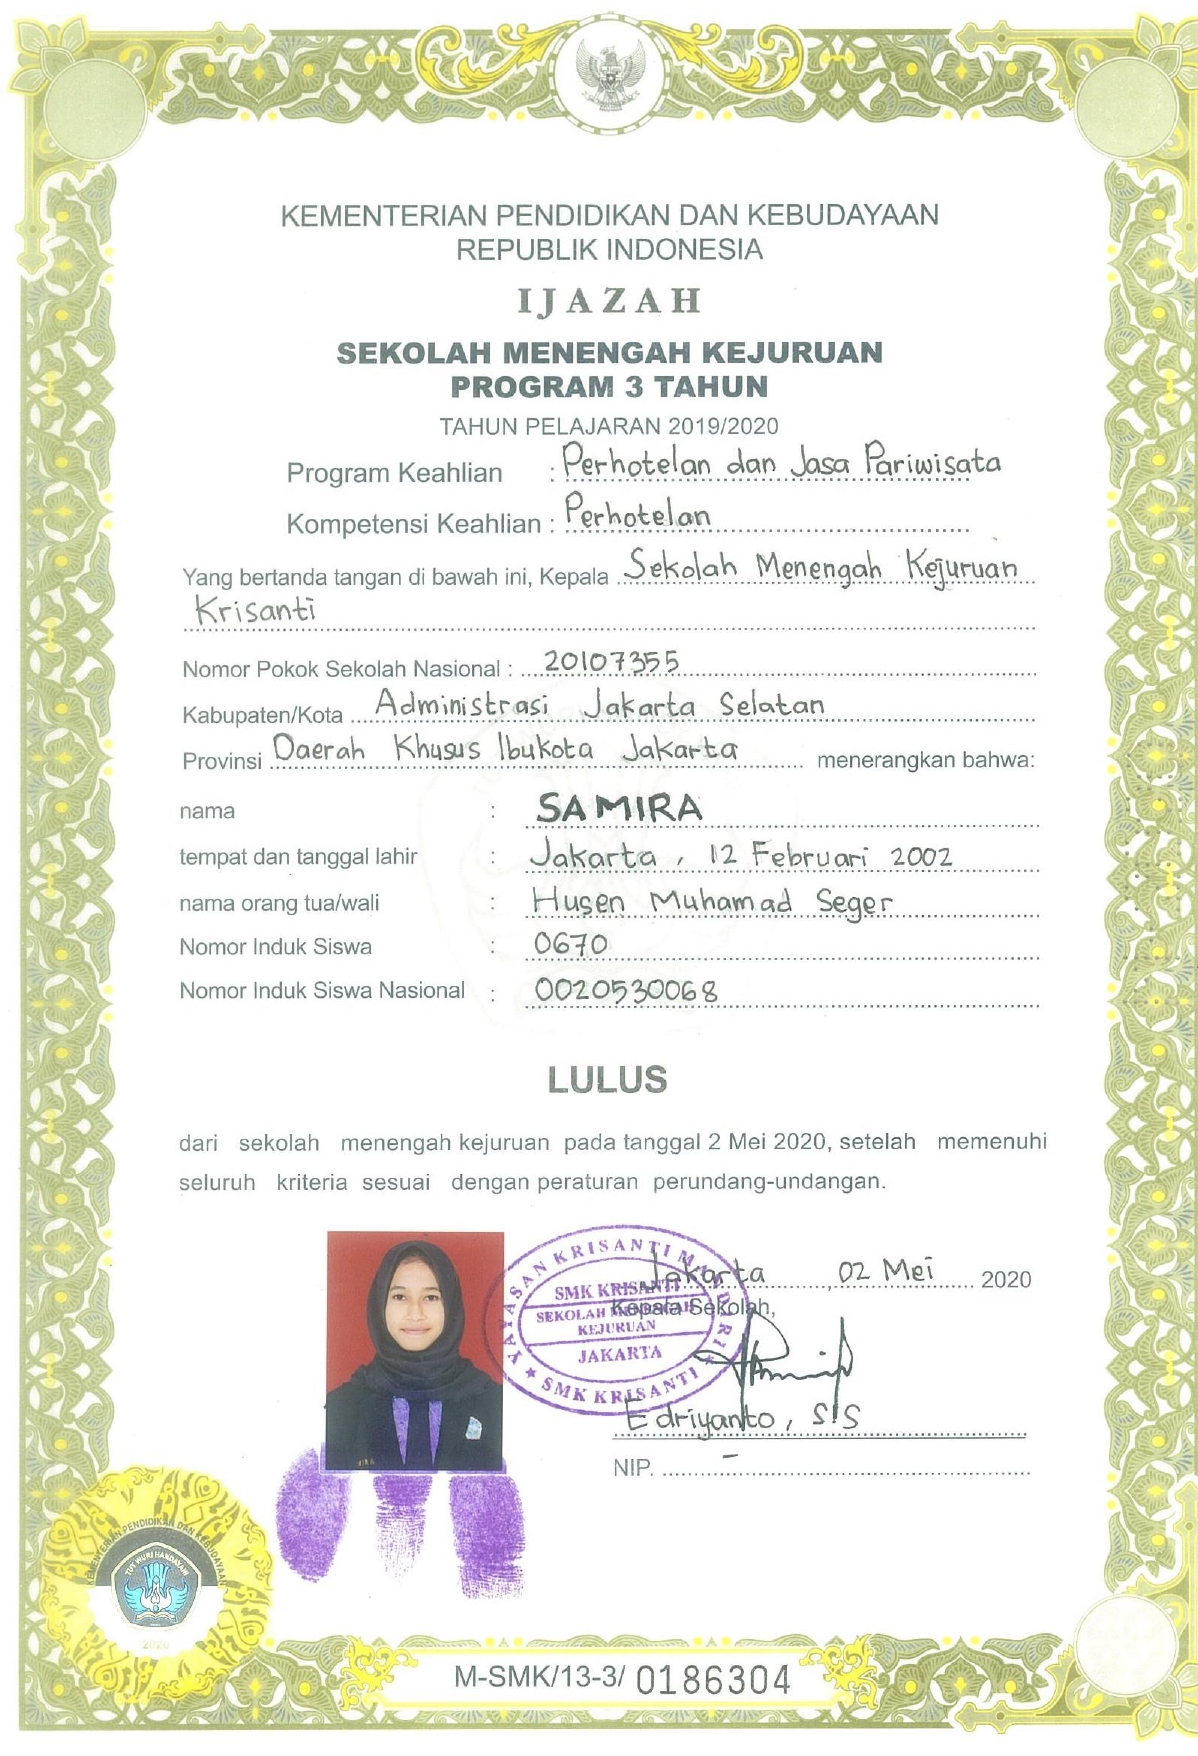 KEMENTERIAN PENDIDIKAN DAN KEBUDAYAAN
REPUBLIK INDONESIA
IJAZAH
SEKOLAH MENENGAH KEJURUAN
PROGRAM 3 TAHUN
TAHUN PELAJARAN 2019/2020
Program Keahlian : Perhotelan dan Jasa Pariwisata
Kompetensi Keahlian : Perhotelan
Yang bertanda tangan di bawah ini, Kepala Sekolah Menengah Kejuruan
Krisanti
Nomor Pokok Sekolah Nasional : 20107355
Kabupaten/Kota Administrasi Jakarta Selatan
Provinsi Daerah Khusus Ibukota Jakarta menerangkan bahwa:
nama : SAMIRA
tempat dan tanggal lahir : Jakarta, 12 Februari 2002
nama orang tua/wali : Husen Muhamad Seger
Nomor Induk Siswa : 0670
Nomor Induk Siswa Nasional : 0020530068
LULUS
dari sekolah menengah kejuruan pada tanggal 2 Mei 2020, setelah memenuhi
seluruh kriteria sesuai dengan peraturan perundang-undangan.
YAYASAN KRISANTI MANDIRI
SMK KRISANTI
SEKOLAH MENENGAH
KEJURUAN
JAKARTA
SMK KRISANTI
Jakarta, 02 Mei 2020
Kepala Sekolah,
Edriyanto, SIS
NIP. –
KEMENTERIAN PENDIDIKAN DAN KEBUDAYAAN
TUT WURI HANDAYANI
2020
M-SMK/13-3/ 0186304